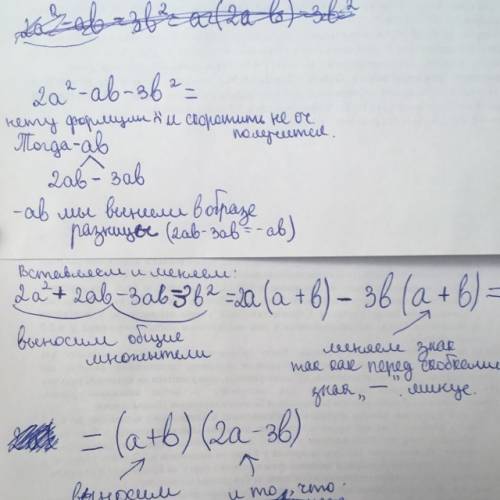 2a² - ab - 3b² = a(2a-b) - 3b²
2a² - ab - 3b² =
нету формулы и скоротить не оч
получится.
Тогда -ab
2ab - 3ab
-ab мы вынели в образе
разницы (2ab - 3ab = -ab)
Вставляем и меняем:
2a² + 2ab - 3ab - 3b² = 2a(a+b) - 3b(a+b) =
выносим общие
множители
меняем знак
так как перед скобками
знак „—" минус.
= (a+b)(2a-3b)
выносим и то, что